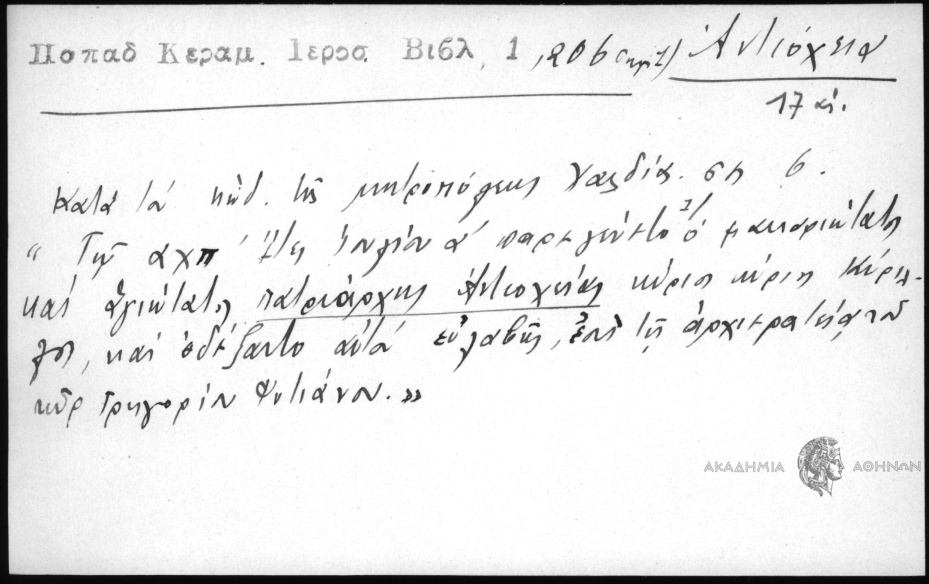 Παπαδ Κεραμ. Ιεροσ. Βιβλ, 1, 206 (σημ 1) Ἀντιόχεια
17 αἰ.
Κατὰ τὸν κώδ. τῆς μητροπόλεως Χαλδίας. ση 6.
“ Τῷ αχπ' ἔτει Ἰουλίου α' παρεγένετο ὁ μακαριώτατος
καὶ ἁγιώτατος πατριάρχης Ἀντιοχείας κύριος κύριος Κύριλ-
λος, καὶ ἐδέξαντο αὐτὸν εὐλαβῶς, ἐπὶ τῆς ἀρχιερατείας τοῦ
κῦρ Γρηγορίου Φυτιάνου. »
ΑΚΑΔΗΜΙΑ ΑΘΗΝΩΝ